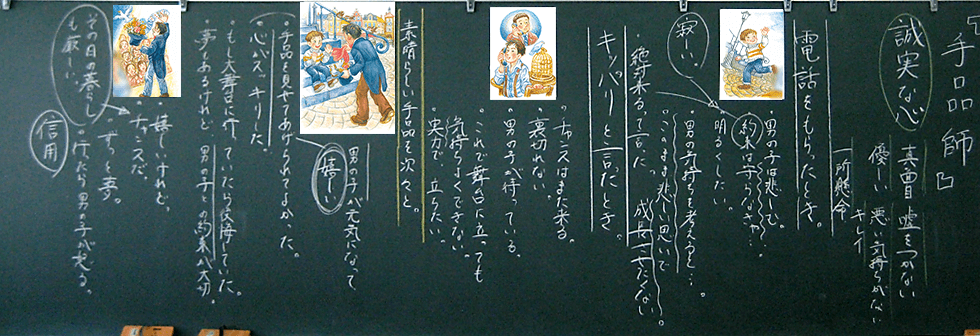 「手品師」
誠実な心
真面目 嘘をつかない
優しい 悪い気持ちがない
キレイ
一所懸命
電話をもらったとき。
男の子は悲しむ。
約束は守らなきゃ…
明るくした。
寂しい。
男の子の気持ちを考えると…。
このまま悲しい思いで
成長させたくない。
・絶対来るって言った。
キッパリと言ったとき。
・チャンスはまた来る。
・裏切れない。
・男の子が待っている。
・これで舞台に立っても
気持ちよくできない。
・実力で立ちたい。
素晴らしい手品を次々と。
男の子が元気になって
嬉しい
・手品を見せてあげられてよかった。
・心がスッキリした。
・もし大舞台に行っていたら後悔していた。
・夢もあるけれど 男の子との約束が大切。
・嬉しいけれど。
・チャンスだ。
・ずっと夢。
・行ったら男の子が来る。
その日の暮らし
も厳しい。
信用